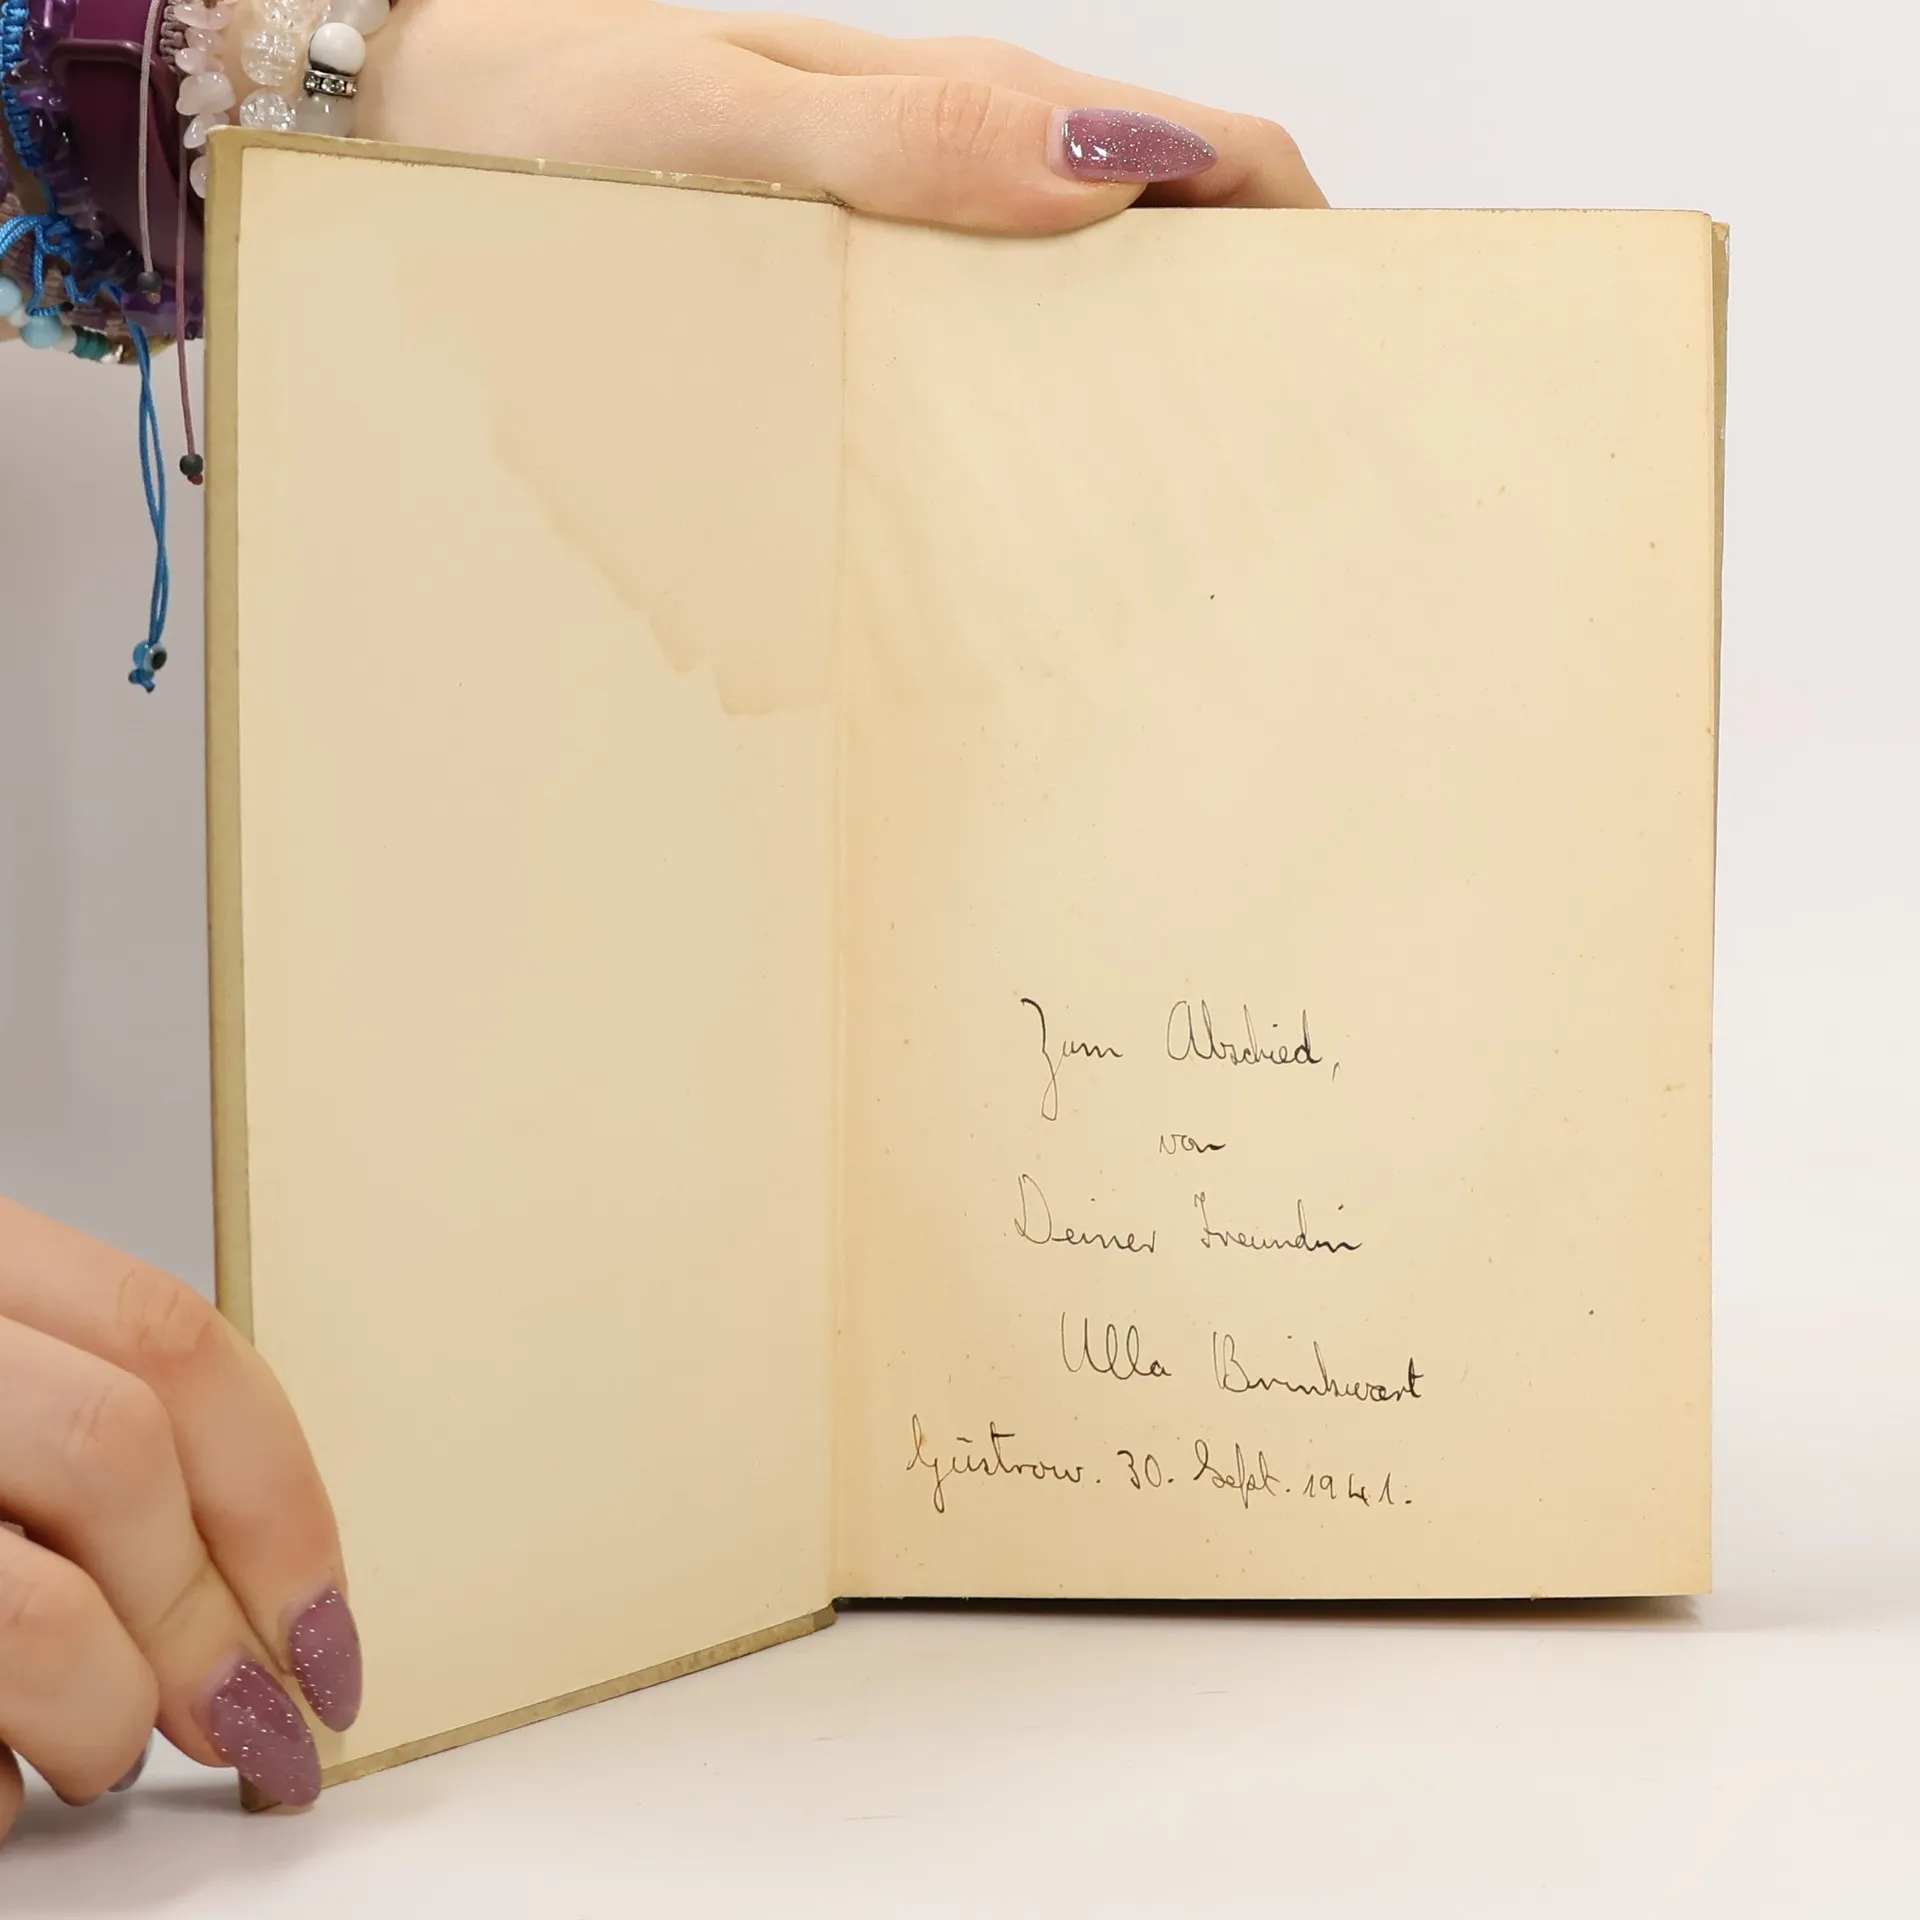 Zum Abschied,
von
Deiner Freundin
Ulla Brinkwart
Güstrow. 30. Sept. 1941.